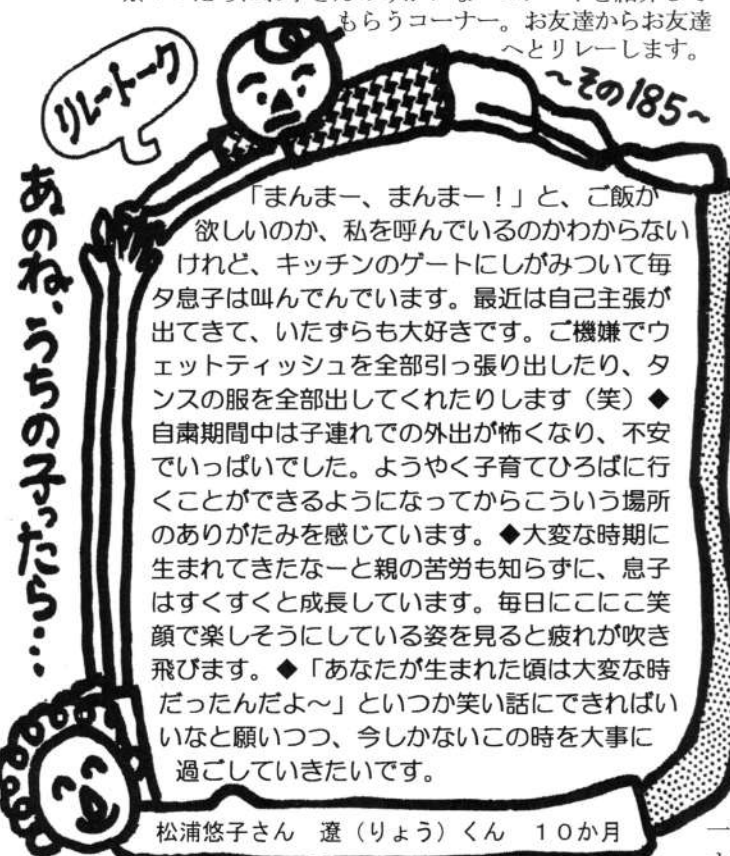 もらうコーナー。お友達からお友達
へとリレーします。
リレートーク
～その185～
あのね、うちの子ったら…
「まんまー、まんまー！」と、ご飯が
欲しいのか、私を呼んでいるのかわからない
けれど、キッチンのゲートにしがみついて毎
夕息子は叫んでんでいます。最近は自己主張が
出てきて、いたずらも大好きです。ご機嫌でウ
ェットティッシュを全部引っ張り出したり、タ
ンスの服を全部出してくれたりします（笑）◆
自粛期間中は子連れでの外出が怖くなり、不安
でいっぱいでした。ようやく子育てひろばに行
くことができるようになってからこういう場所
のありがたみを感じています。◆大変な時期に
生まれてきたなーと親の苦労も知らずに、息子
はすくすくと成長しています。毎日にこにこ笑
顔で楽しそうにしている姿を見ると疲れが吹き
飛びます。◆「あなたが生まれた頃は大変な時
だったんだよ～」といつか笑い話にできればい
いなと願いつつ、今しかないこの時を大事に
過ごしていきたいです。
松浦悠子さん　遼（りょう）くん　１０か月